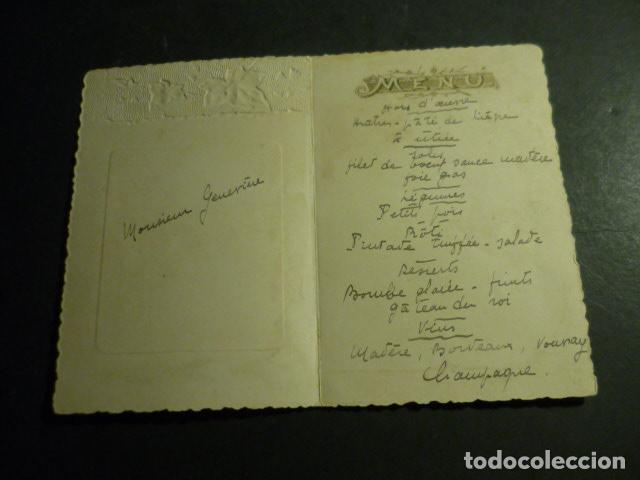 Monsieur Geneviève
MENU
Hors d'œuvre
Huîtres - pâté de lièpre
Entrée
filet de bœuf sauce madère
foie gras
Légumes
Petits pois
Rôti
Pintade truffée - salade
Desserts
Bombe glacée - fruits
gâteau du roi
Vins
Madère, Bordeaux, Vouvray
Champagne.
todocoleccion.net